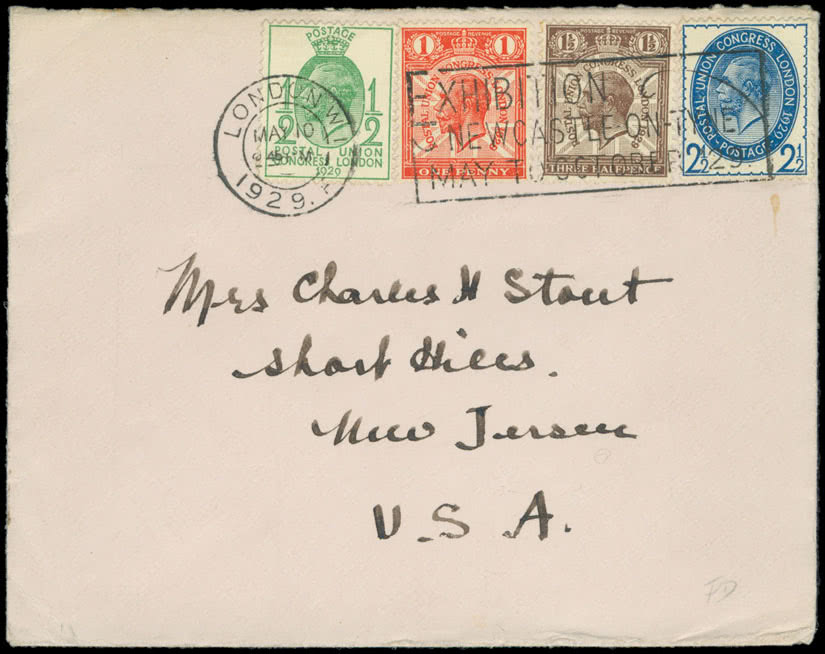 POSTAGE
1/2 1/2
POSTAL UNION
CONGRESS LONDON
1929
POSTAGE REVENUE
1 1
POSTAL UNION CONGRESS LONDON
ONE PENNY
POSTAGE REVENUE
1½ 1½
POSTAL UNION CONGRESS LONDON 1929
THREE HALFPENCE
POSTAL UNION CONGRESS LONDON 1929
POSTAGE
2½ 2½
LONDON.W.1
MAY 10
1929.
EXHIBITION
NEWCASTLE-ON-TYNE
MAY TO OCTOBER 1929.
Mrs Charles H Stout
Short Hills.
New Jersey
U.S.A.
FD